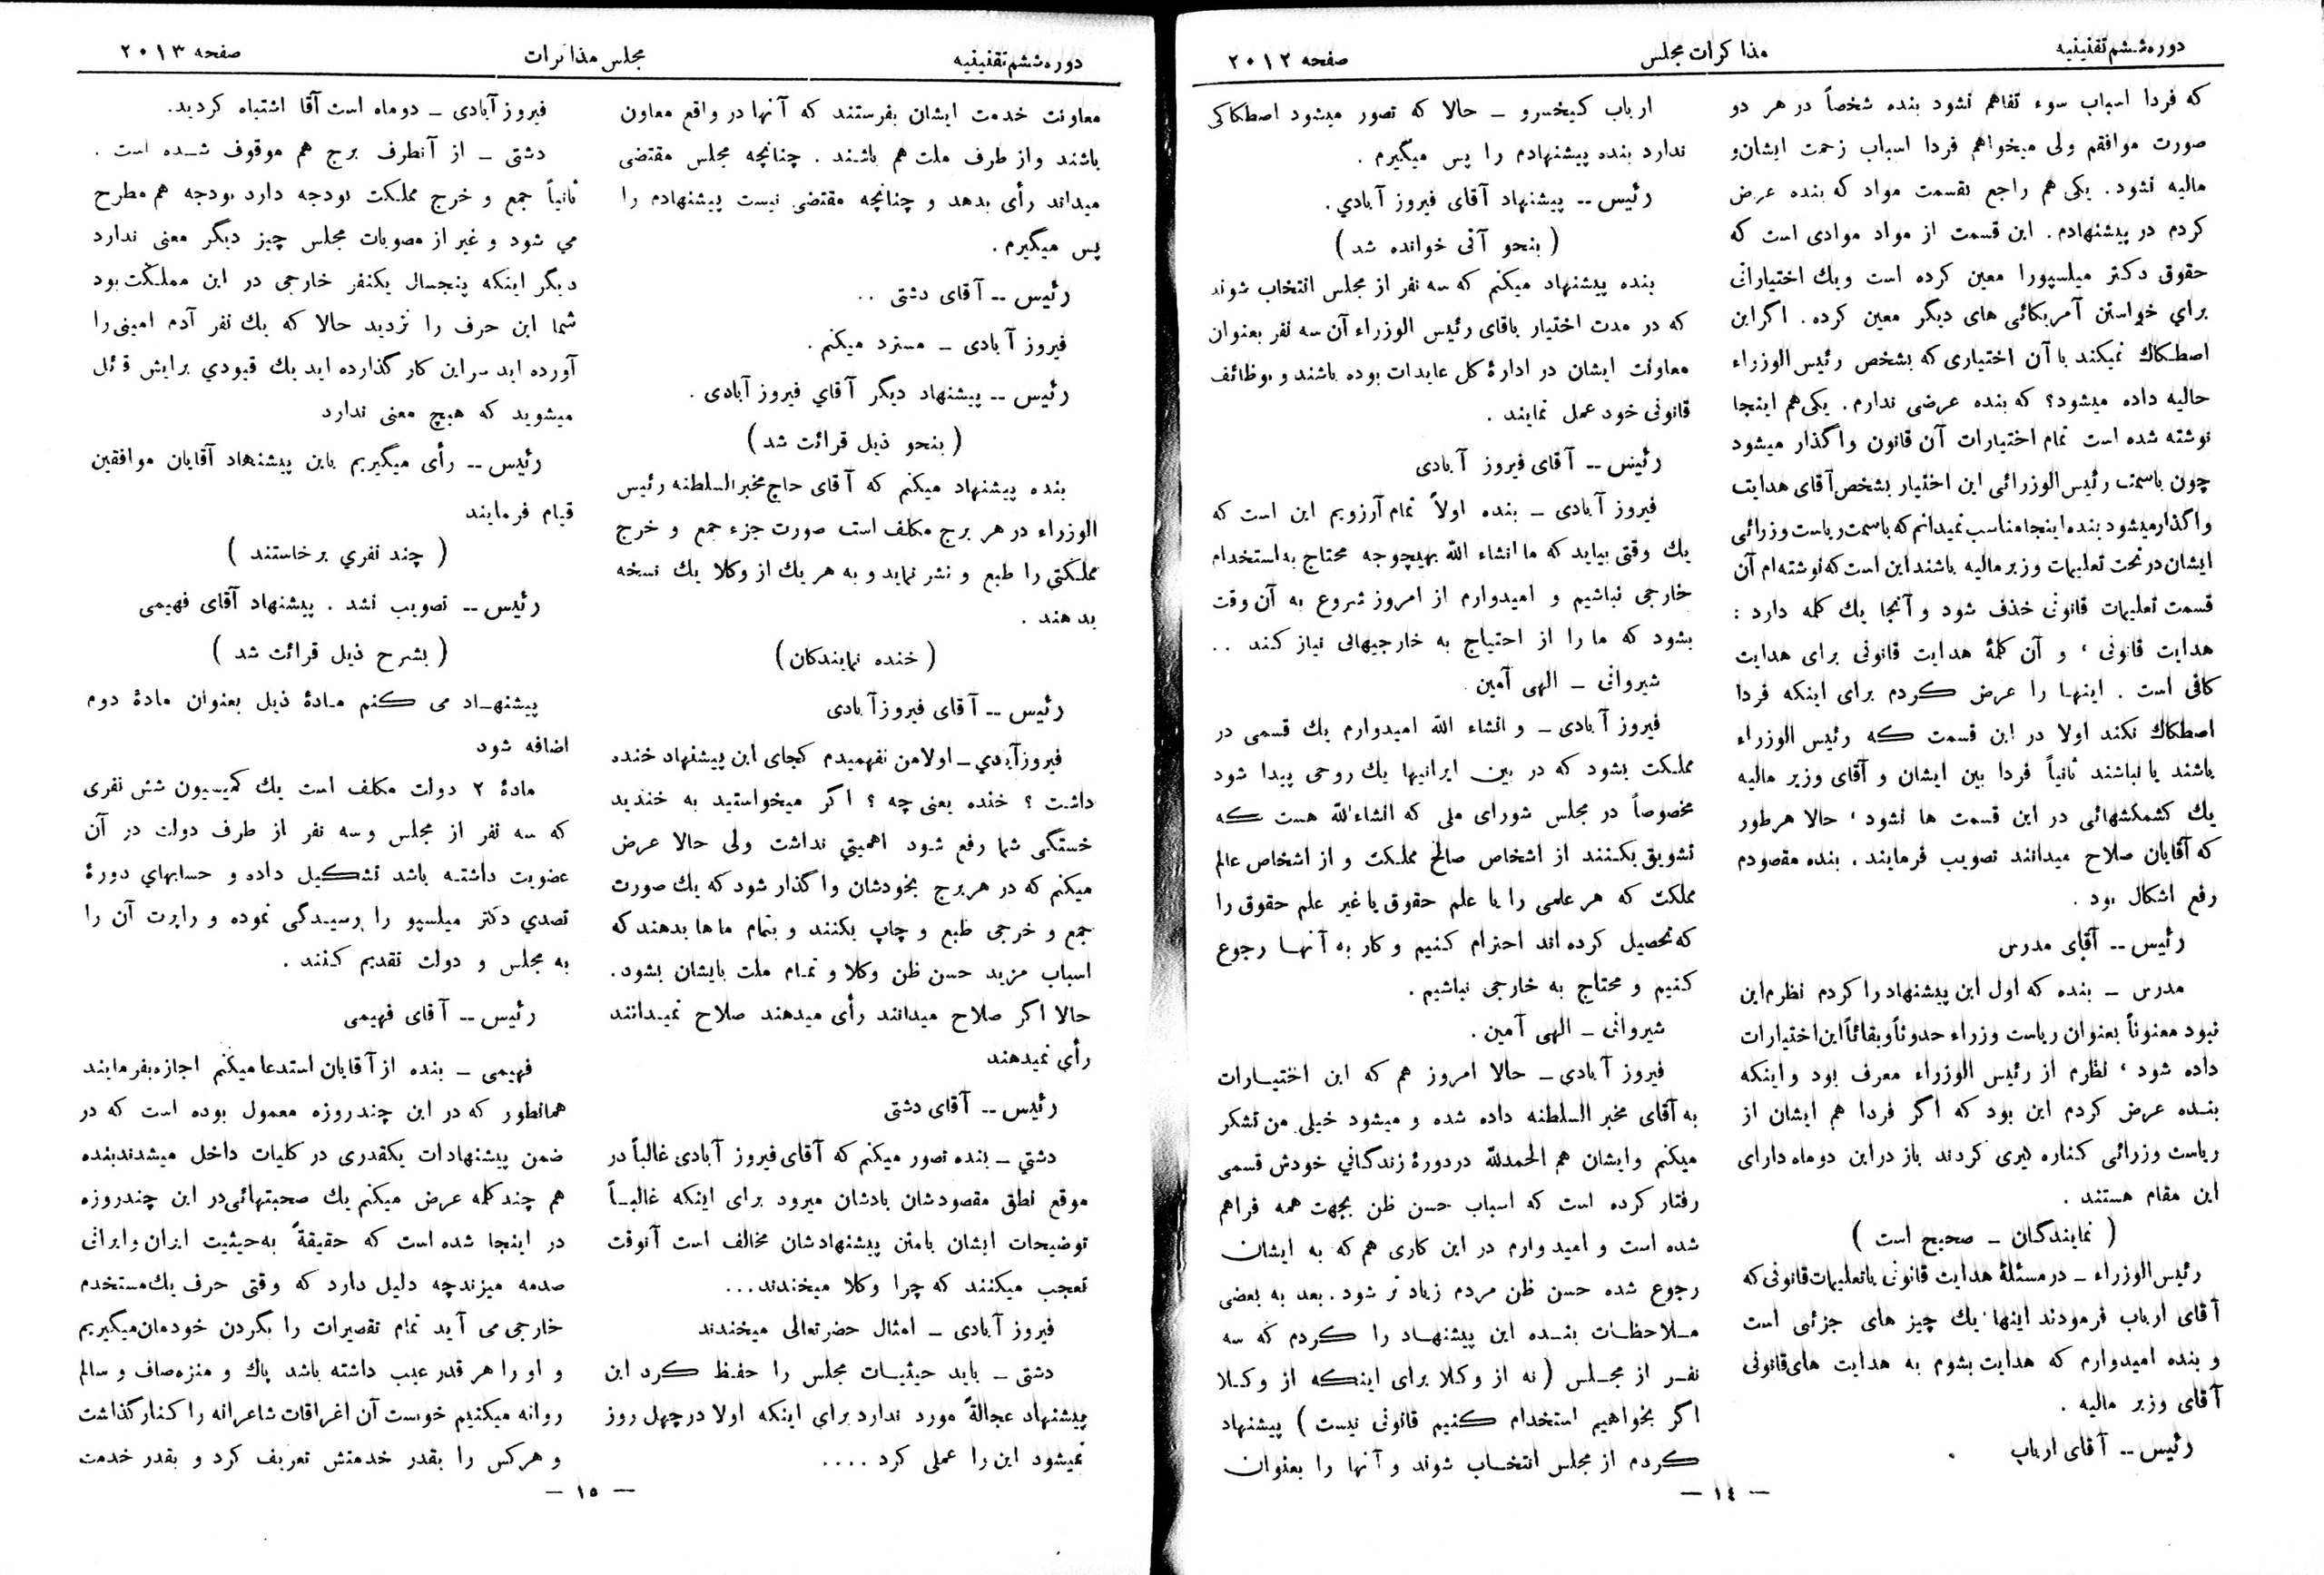 دوره ششم تقنینیه
مذاکرات مجلس
صفحه ۲۰۱۲
که فردا اسباب سوء تفاهم نشود بنده شخصاً در هر دو
صورت موافقم ولی میخواهم فردا اسباب زحمت ایشان و
مالیه نشود. یکی هم راجع بقسمت مواد که بنده عرض
کردم در پیشنهادم. این قسمت از مواد موادی است که
حقوق دکتر میلسپورا معین کرده است ویك اختیاراتی
برای خواستن آمریکائی های دیگر معین کرده. اگر این
اصطکاك نمیکند با آن اختیاری که بشخص رئیس الوزراء
حالیه داده میشود؟ که بنده عرضی ندارم. یکی هم اینجا
نوشته شده است تمام اختیارات آن قانون واگذار میشود
چون باسمت رئیس الوزرائی این اختیار بشخص آقای هدایت
واگذار میشود بنده اینجا مناسب نمیدانم که باسمت ریاست وزرائی
ایشان در تحت تعلیمات وزیر مالیه باشند این است که نوشته ام آن
قسمت تعلیمات قانونی خذف شود و آنجا یك کلمه دارد :
هدایت قانونی ، و آن کلمهٔ هدایت قانونی برای هدایت
کافی است . اینها را عرض کردم برای اینکه فردا
اصطکاك نکند اولا در این قسمت که رئیس الوزراء
باشند یا نباشند ثانیاً فردا بین ایشان و آقای وزیر مالیه
یك کشمکشهائی در این قسمت ها نشود ، حالا هرطور
که آقایان صلاح میدانند تصویب فرمایند . بنده مقصودم
رفع اشکال بود .
رئیس -- آقای مدرس
مدرس – بنده که اول این پیشنهاد را کردم نظرم این
نبود معنوناً بعنوان ریاست وزراء حدوثاً وبقائاً این اختیارات
داده شود ، نظرم از رئیس الوزراء معرف بود و اینکه
بنده عرض کردم این بود که اگر فردا هم ایشان از
ریاست وزرائی کناره گیری کردند باز در این دوماه دارای
این مقام هستند .
( نمایندگان – صحیح است )
رئیس الوزراء – در مسئلهٔ هدایت قانونی یا تعلیمات قانونی که
آقای ارباب فرمودند اینها یك چیز های جزئی است
و بنده امیدوارم که هدایت بشوم به هدایت های قانونی
آقای وزیر مالیه .
رئیس -- آقای ارباب .
ارباب کیخسرو – حالا که تصور میشود اصطکاکی
ندارد بنده پیشنهادم را پس میگیرم .
رئیس -- پیشنهاد آقای فیروز آبادي .
( بنحو آتی خوانده شد )
بنده پیشنهاد میکنم که سه نفر از مجلس انتخاب شوند
که در مدت اختیار باقای رئیس الوزراء آن سه نفر بعنوان
معاونت ایشان در ادارهٔ کل عایدات بوده باشند و بوظائف
قانونی خود عمل نمایند .
رئیس -- آقای فیروز آبادی
فیروز آبادی – بنده اولاً تمام آرزویم این است که
یك وقتی بیاید که ما انشاء الله بهیچوجه محتاج به استخدام
خارجی نباشیم و امیدوارم از امروز شروع به آن وقت
بشود که ما را از احتیاج به خارجیهائی نیاز کند ..
شیروانی – الهی آمین .
فیروز آبادی – و انشاء الله امیدوارم یك قسمی در
مملکت بشود که در بین ایرانیها یك روحی پیدا شود
مخصوصاً در مجلس شورای ملی که انشاءالله هست که
تشویق بکنند از اشخاص صالح مملکت و از اشخاص عالم
مملکت که هر علمی را یا علم حقوق یا غیر علم حقوق را
که تحصیل کرده اند احترام کنیم و کار به آنها رجوع
کنیم و محتاج به خارجی نباشیم .
شیروانی – الهی آمین .
فیروز آبادی – حالا امروز هم که این اختیارات
به آقای مخبر السلطنه داده شده و میشود خیلی من تشکر
میکنم و ایشان هم الحمدلله در دورهٔ زندگانی خودش قسمی
رفتار کرده است که اسباب حسن ظن بجهت همه فراهم
شده است و امید وارم در این کاری هم که به ایشان
رجوع شده حسن ظن مردم زیاد تر شود . بعد به بعضی
ملاحظات بنده این پیشنهاد را کردم که سه
نفر از مجلس ( نه از وکلا برای اینکه از وکلا
اگر بخواهیم استخدام کنیم قانونی نیست ) پیشنهاد
کردم از مجلس انتخاب شوند و آنها را بعنوان
— ١٤ —
دوره ششم تقنینیه
مجلس مذاکرات
صفحه ۲۰۱۳
معاونت خدمت ایشان بفرستند که آنها در واقع معاون
باشند و از طرف ملت هم باشند . چنانچه مجلس مقتضی
میداند رأی بدهد و چنانچه مقتضی نیست پیشنهادم را
پس میگیرم .
رئیس -- آقای دشتی ..
فیروز آبادی – مسترد میکنم .
رئیس -- پیشنهاد دیگر آقاي فیروز آبادی .
( بنحو ذیل قرائت شد )
بنده پیشنهاد میکنم که آقای حاج مخبرالسلطنه رئیس
الوزراء در هر برج مکلف است صورت جزء جمع و خرج
مملکتی را طبع و نشر نماید و به هر یك از وکلا یك نسخه
بدهند .
( خنده نمایندکان )
رئیس -- آقای فیروزآبادی
فیروزآبادي – اولا من نفهمیدم کجای این پیشنهاد خنده
داشت ؟ خنده یعنی چه ؟ اکر میخواستید به خندید
خستگی شما رفع شود اهمیتی نداشت ولی حالا عرض
میکنم که در هر برج بخودشان واگذار شود که یك صورت
جمع و خرجی طبع و چاپ بکنند و بتمام ماها بدهند که
اسباب مزید حسن ظن وکلا و تمام ملت بایشان بشود .
حالا اکر صلاح میدانند رأی میدهند صلاح نمیدانند
رأی نمیدهند
رئیس -- آقای دشتی
دشتي – بنده تصور میکنم که آقای فیروز آبادی غالباً در
موقع نطق مقصودشان یادشان میرود برای اینکه غالباً
توضیحات ایشان بامتن پیشنهادشان مخالف است آنوقت
تعجب میکنند که چرا وکلا میخندند...
فیروز آبادی – امثال حضرتعالی میخندند
دشتی – باید حیثیات مجلس را حفظ کرد این
پیشنهاد عجالةً مورد ندارد برای اینکه اولا درچهل روز
نمیشود این را عملی کرد ....
فیروز آبادی – دوماه است آقا اشتباه کردید.
دشتی – از آنطرف برج هم موقوف شده است .
ثانیاً جمع و خرج مملکت بودجه دارد بودجه هم مطرح
مي شود و غیر از مصوبات مجلس چیز دیگر معنی ندارد
دیگر اینکه پنجسال یکنفر خارجی در این مملکت بود
شما این حرف را نزدید حالا که یك نفر آدم امینی را
آورده اید سر این کار گذارده اید یك قیودي برایش قائل
میشوید که هیچ معنی ندارد
رئیس -- رأی میگیریم باین پیشنهاد آقایان موافقین
قیام فرمایند
( چند نفري برخاستند )
رئیس -- تصویب نشد . پیشنهاد آقای فهیمی
( بشرح ذیل قرائت شد )
پیشنهاد می کنم مادهٔ ذیل بعنوان مادهٔ دوم
اضافه شود
مادهٔ ۲ دولت مکلف است یك کمیسیون شش نفری
که سه نفر از مجلس و سه نفر از طرف دولت در آن
عضویت داشته باشد تشکیل داده و حسابهاي دورهٔ
تصدي دکتر میلسپو را رسیدگی نموده و راپرت آن را
به مجلس و دولت تقدیم کنند .
رئیس -- آقای فهیمی
فهیمی – بنده از آقایان استدعا میکنم اجازه بفرمایند
همانطور که در این چندروزه معمول بوده است که در
ضمن پیشنهادات یکقدری در کلیات داخل میشدند بنده
هم چند کلمه عرض میکنم یك صحبتهائی در این چندروزه
در اینجا شده است که حقیقةً به حیثیت ایران و ایرانی
صدمه میزند چه دلیل دارد که وقتی حرف یك مستخدم
خارجی می آید تمام تقصیرات را بگردن خودمان میگیریم
و او را هر قدر عیب داشته باشد پاك و منزه صاف و سالم
روانه میکنیم خوبست آن اغراقات شاعرانه را کنار گذاشت
و هرکس را بقدر خدمتش تعریف کرد و بقدر خدمت
— ١٥ —